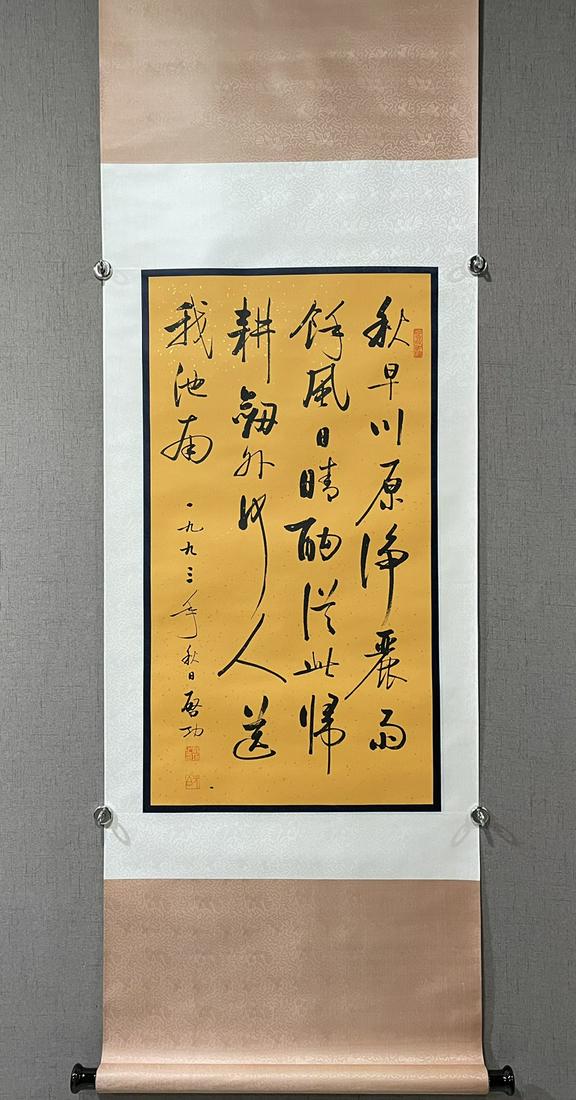 秋早川原淨麗雨
餘風日晴酣從此歸
耕劒外何人送
我池南
一九九三年秋日啓功